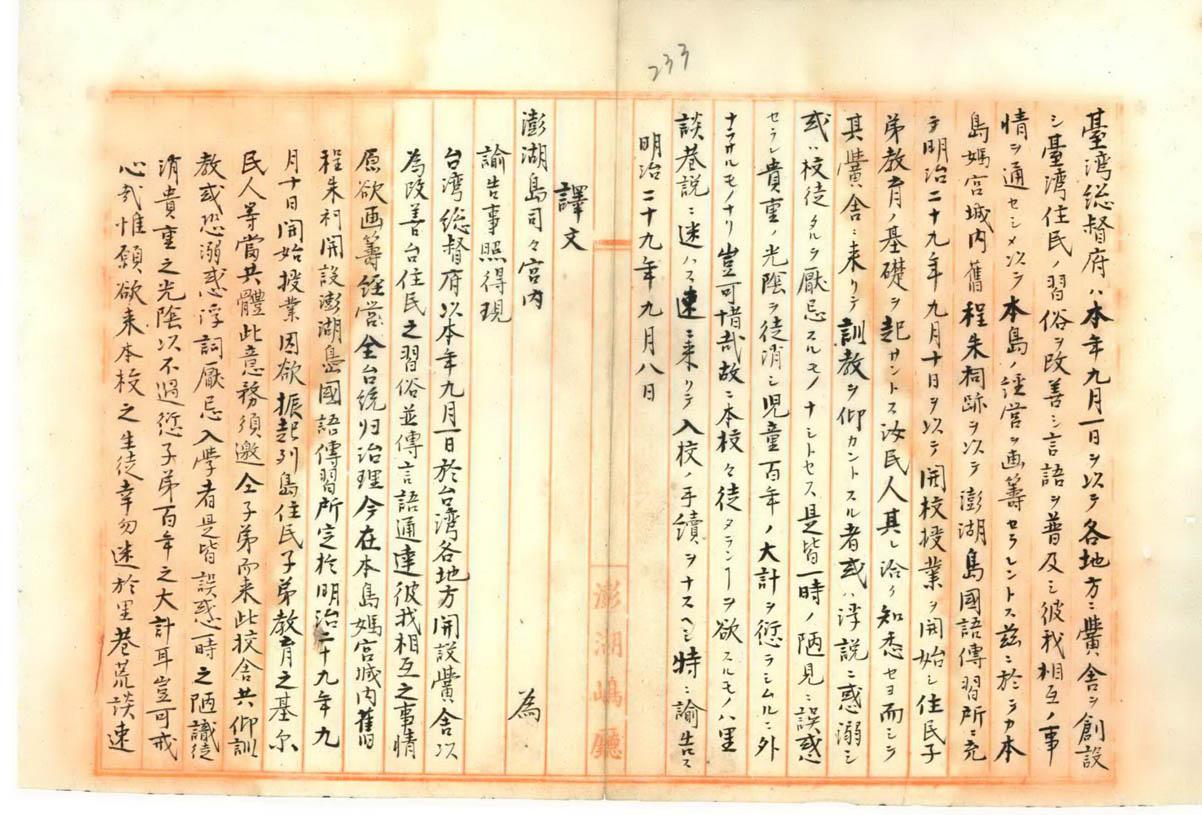 233
臺湾総督府ハ本年九月一日ヲ以テ各地方ニ黌舎ヲ創設
シ臺湾住民ノ習俗ヲ改善シ言語ヲ普及シ彼我相互ノ事
情ヲ通セシメ以テ本島ノ経営ヲ画籌セラレントス茲ニ於テカ本
島媽宮城内舊程朱祠跡ヲ以テ澎湖島國語傳習所ニ充
テ明治二十九年九月十日ヲ以テ開校授業ヲ開始シ住民子
弟教育ノ基礎ヲ起サントス汝民人其レ洽ク知悉セヨ而シテ
其黌舎ニ来リテ訓教ヲ仰カントスル者或ハ浮説ニ惑溺シ
或ハ校徒タルヲ厭忌スルモノナシトセス是皆一時ノ陋見ニ誤惑
セラレ貴重ノ光陰ヲ徒消シ児童百年ノ大計ヲ愆ラシムルニ外
ナラサルモノナリ豈可惜哉故ニ本校々徒タランヿヲ欲スルモノハ里
談巷説ニ迷ハス速ニ来リテ入校ノ手續ヲナスヘシ特ニ諭告ス
明治二十九年九月八日
澎湖嶋廳
譯文
澎湖島司々宮内 為
諭告事照得現
台湾総督府以本年九月一日於台湾各地方開設黌舎以
為改善台住民之習俗並傳言語通達彼我相互之事情
愿欲画籌経営全台統归治理今在本島媽宮城内舊
程朱祠開設澎湖島國語傳習所定於明治二十九年九
月十日開始授業因欲振起列島住民子弟教育之基尔
民人等當共體此意務須邀仝子弟而来此校舎共仰訓
教或恐溺惑浮詞厭忌入學者是皆誤惑一時之陋識徒
消貴重之光陰以不過愆子弟百年之大計耳豈可戒
心哉惟願欲来本校之生徒幸勿迷於里巷荒談速